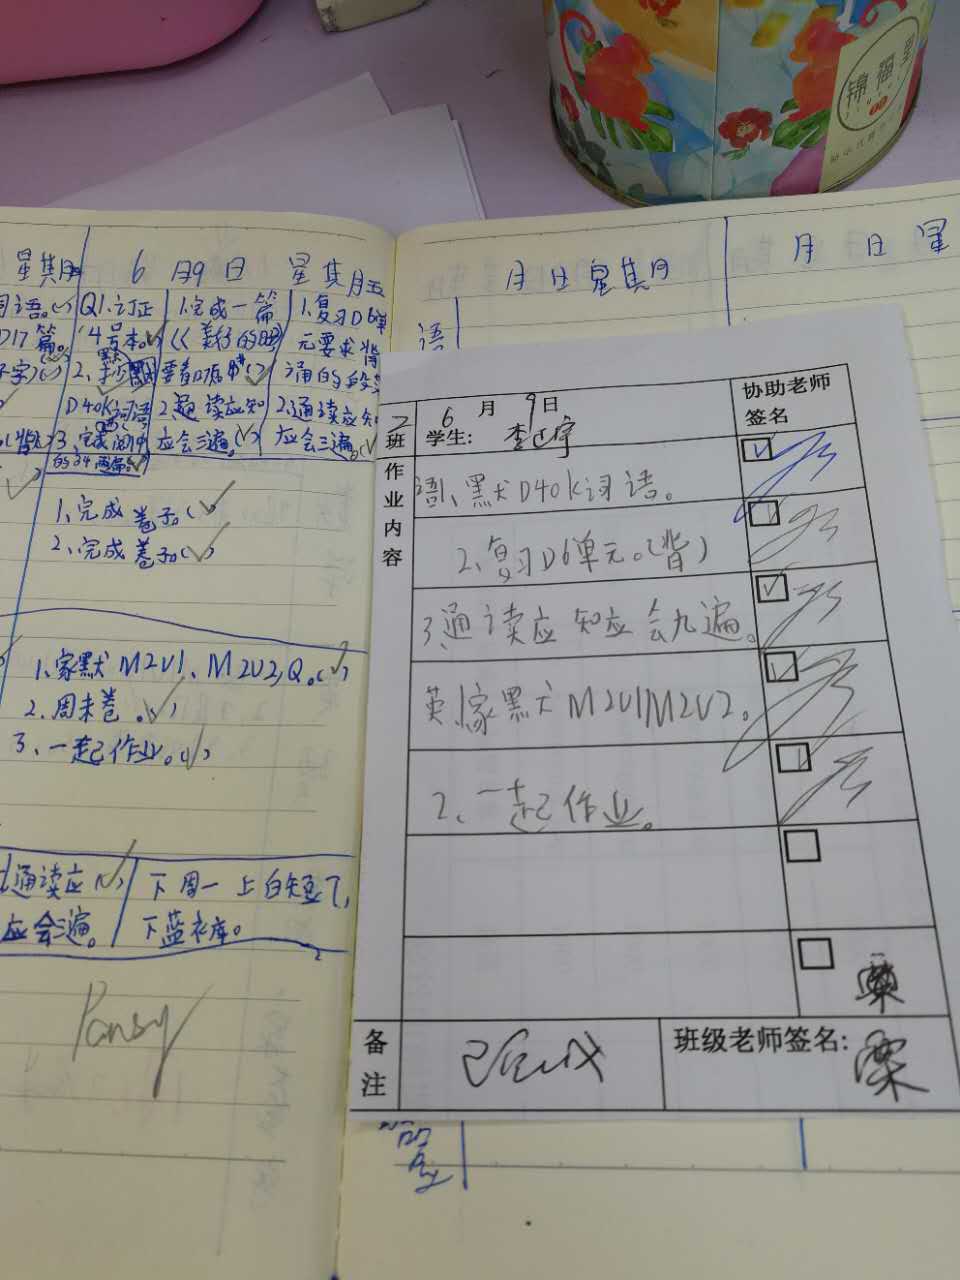 锦福里
星其月
6月9日 星其月五
词语。(√)
D17篇。
Q1.订正
14号本。
D40k词语
1.完成一篇
要看
2.通读应知
应会三遍。(√)
1.复习D6单
元要求背
诵的段
2.通读应知
应会三遍。(√
1、完成卷子。(√)
2、完成卷子。(√)
1、家默M2U1、M2U2,Q。(√)
2、周末卷。(√)
3、一起作业。(√)
通读应(√)
应会三遍。
下周一上白短T,
下蓝衣库。
Pansy
月日星其月
月日星
语
2班
6月9日
学生:
协助老师
签名
作业内容
语1、默D40k词语。
2、复习D6单元。(背)
3、通读应知应会九遍。
英1、家默M2U1M2U2。
2、一起作业。
备注
已完成
班级老师签名:
栗